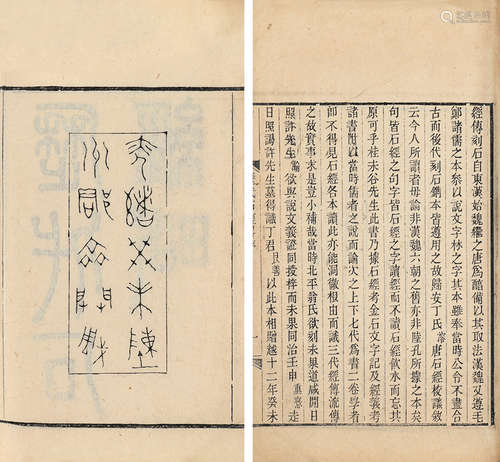 光緒癸未
經傳刻石自東漢始魏繼之唐爲醕備以其取法漢魏又遵毛
鄭諸儒之本叅以說文字林之字其本雖奉當時公令不盡合
古而後代刻石鐫本皆遵用之故歸安丁氏唐石經校議敘
云今人所讀者毋論非漢魏六朝之舊亦非陸孔所據之本矣
句皆石經之句字皆石經之字讀經而不讀石經飮水而忘其
原可乎桂未谷先生此書乃據石經考金石文字記及經義考
諸書附以當時儒者之說而論次之上下七代爲書二卷學者
卽不得見石經各本讀此亦能洞徹根由而識三代經傳流傳
之故實事求是豈小補哉當時北平翁氏欲刻未果道咸閒日
照許先生瀚欲與說文義證同授梓而未果同治壬申走
日照謁許先生墓得識丁君艮善以此本相贈越十二年癸未